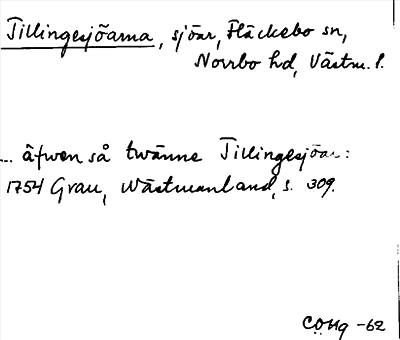 Tillingesjöarna, sjöar, Fläckebo sn,
Norrbo hd, Västm. l.
... äfwen så twänne Tillingesjöar:
1754 Grau, Wästmanland, s. 309.
-62